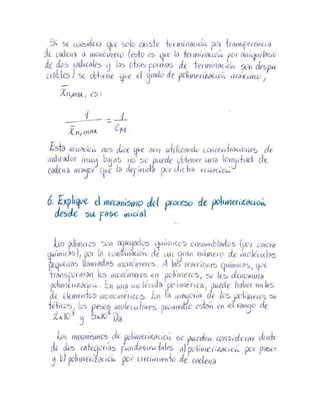 Si se considera que solo existe terminación por transferencia
de cadena a monómero (esto es que la terminación por aniquilación
de dos radicales y las otras formas de terminación son despre
ciables) se obtiene que el grado de polimerización máximo,
X̄n,max, es:
1 / X̄n,max = 1 / CM
Esta ecuación nos dice que aun utilizando concentraciones de
iniciador muy bajas no se puede obtener una longitud de
cadena mayor que la definida por dicha ecuación
6. Explique el mecanismo del proceso de polimerización
desde su fase inicial
Los polímeros son agregados químicos ensamblados (por uniones
químicas), por la combinación de un gran número de moléculas
pequeñas llamadas monómeros. A las reacciones químicas, que
transforman los monómeros en polímeros, se les denomina
polimerización. En una molécula polimérica, puede haber miles
de elementos monoméricos. En la mayoría de los polímeros sin
téticos, los pesos moleculares promedio están en el rango de
y Da.
Los mecanismos de polimerización se pueden considerar dentr
de dos categorías fundamentales a) polimerización por pasos
y b) polimerización por crecimiento de cadena